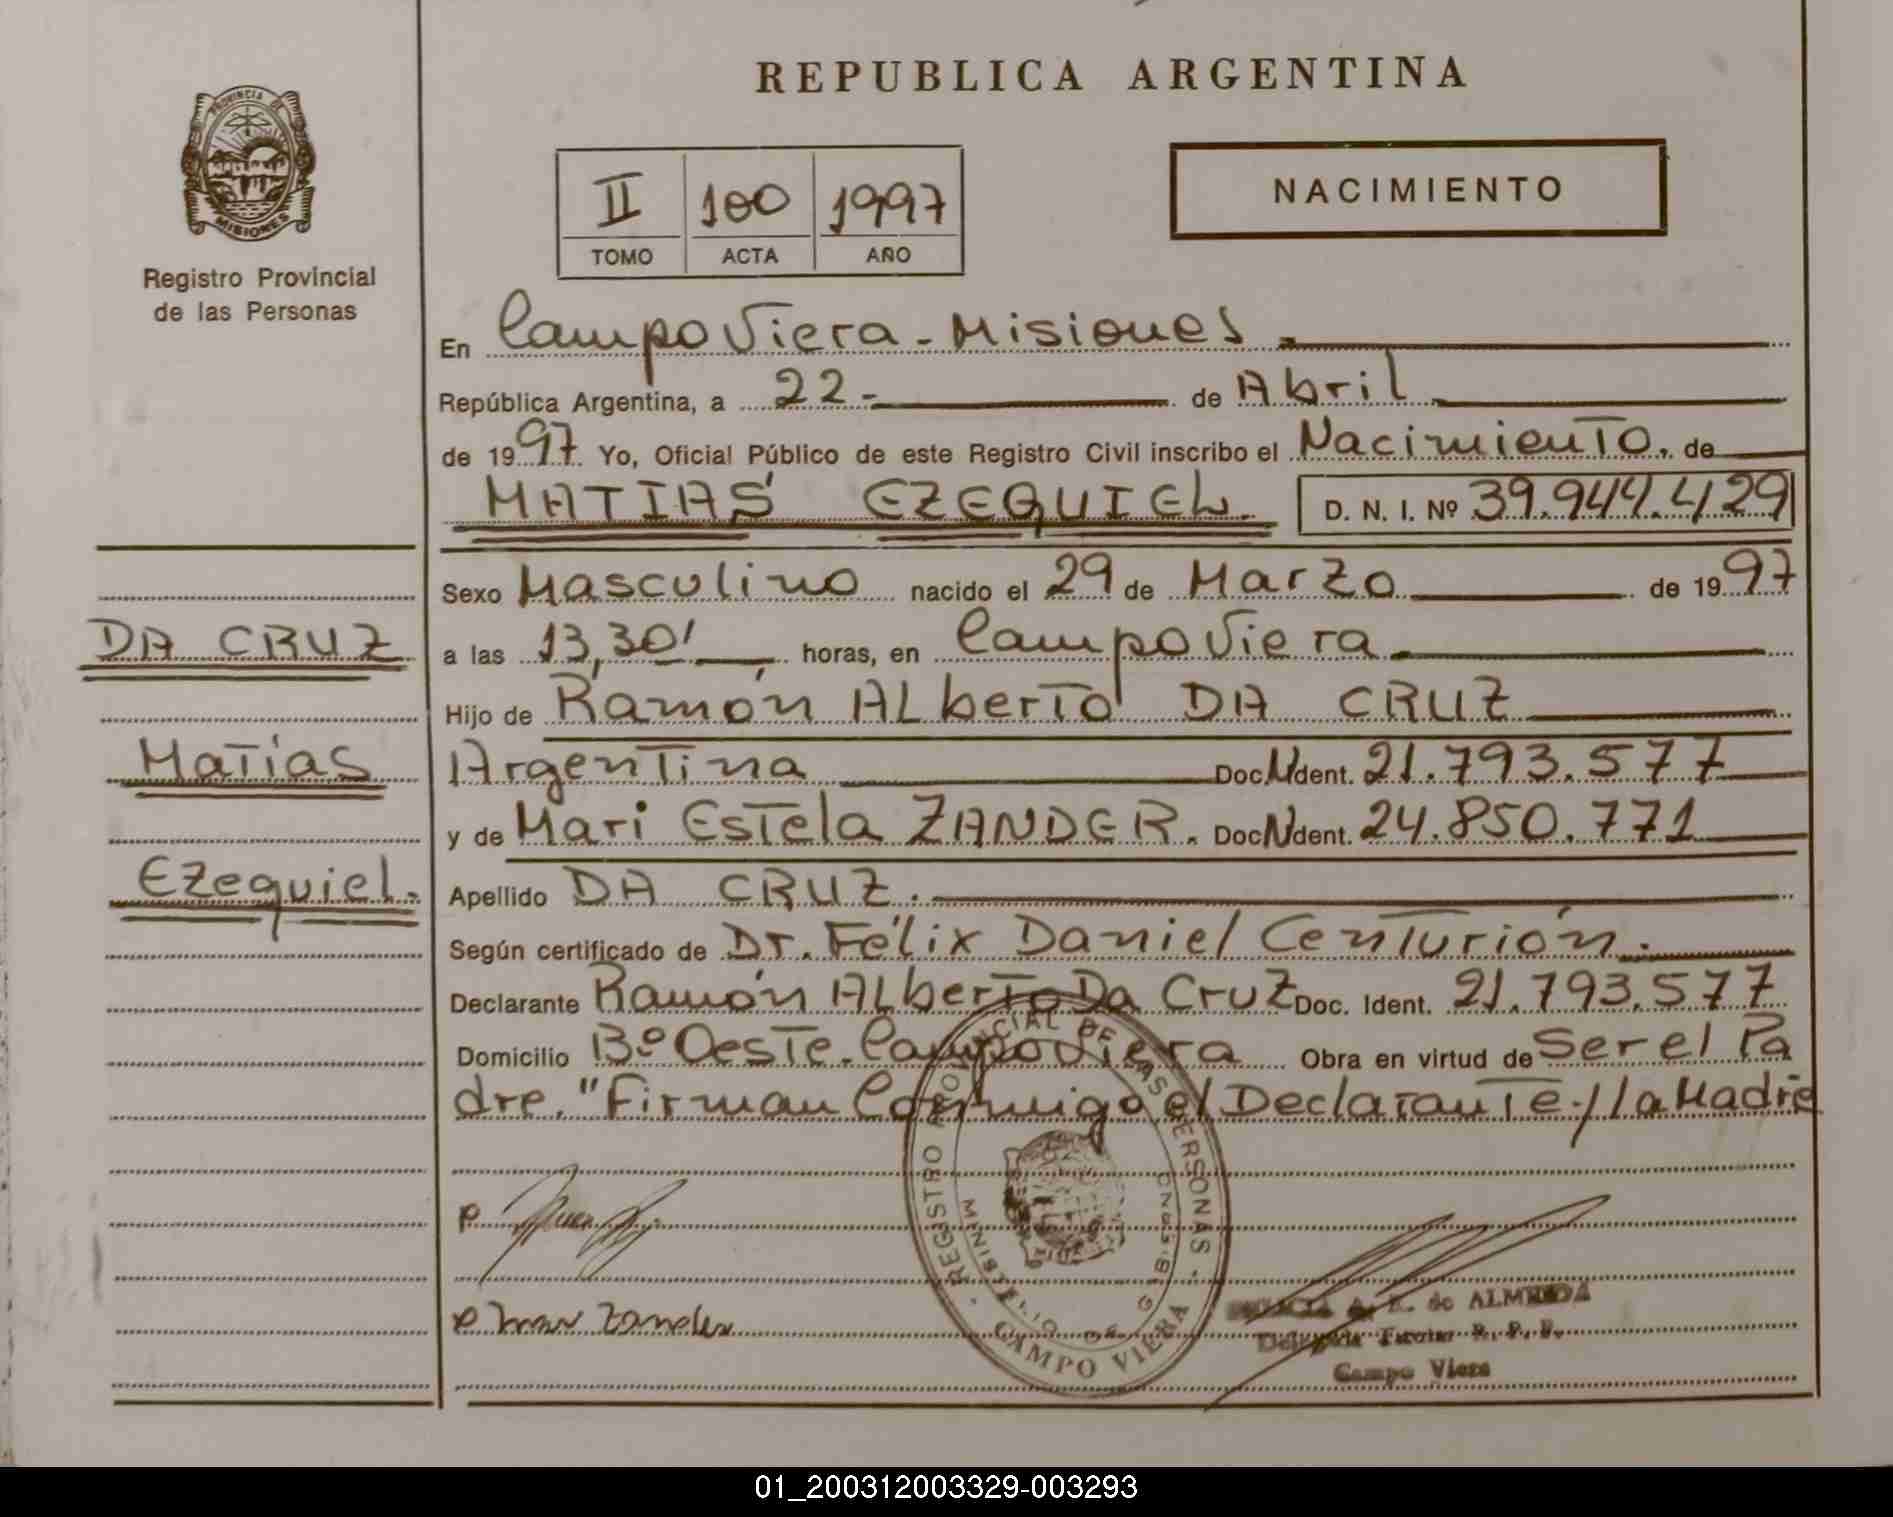 REPUBLICA ARGENTINA
PROVINCIA DE
MISIONES
Registro Provincial
de las Personas
II 100 1997
TOMO ACTA AÑO
NACIMIENTO
En Campo Viera - Misiones
República Argentina, a 22 - de Abril
de 1997. Yo, Oficial Público de este Registro Civil inscribo el Nacimiento. de
MATIAS EZEQUIEL. D. N. I. Nº 39.944.429
Sexo Masculino nacido el 29 de Marzo de 1997
DA CRUZ
a las 13,30' horas, en Campo Viera
Hijo de Ramón ALberto DA CRUZ
Matías
Argentina Doc. N Ident. 21.793.577
y de Mari Estela ZANDER. Doc N Ident. 24.850.771
Ezequiel.
Apellido DA CRUZ.
Según certificado de Dr. Félix Daniel Centurión.
Declarante Ramón ALberto Da Cruz Doc. Ident. 21.793.577
Domicilio Bº Oeste. Campo Viera Obra en virtud de Ser el Pa
dre. "Firman Conmigo el Declarante / la Madre
REGISTRO PROVINCIAL DE LAS PERSONAS
MINISTERIO DE GOBIERNO
CAMPO VIERA
A. E. de ALMEIDA
Campo Viera
01_200312003329-003293